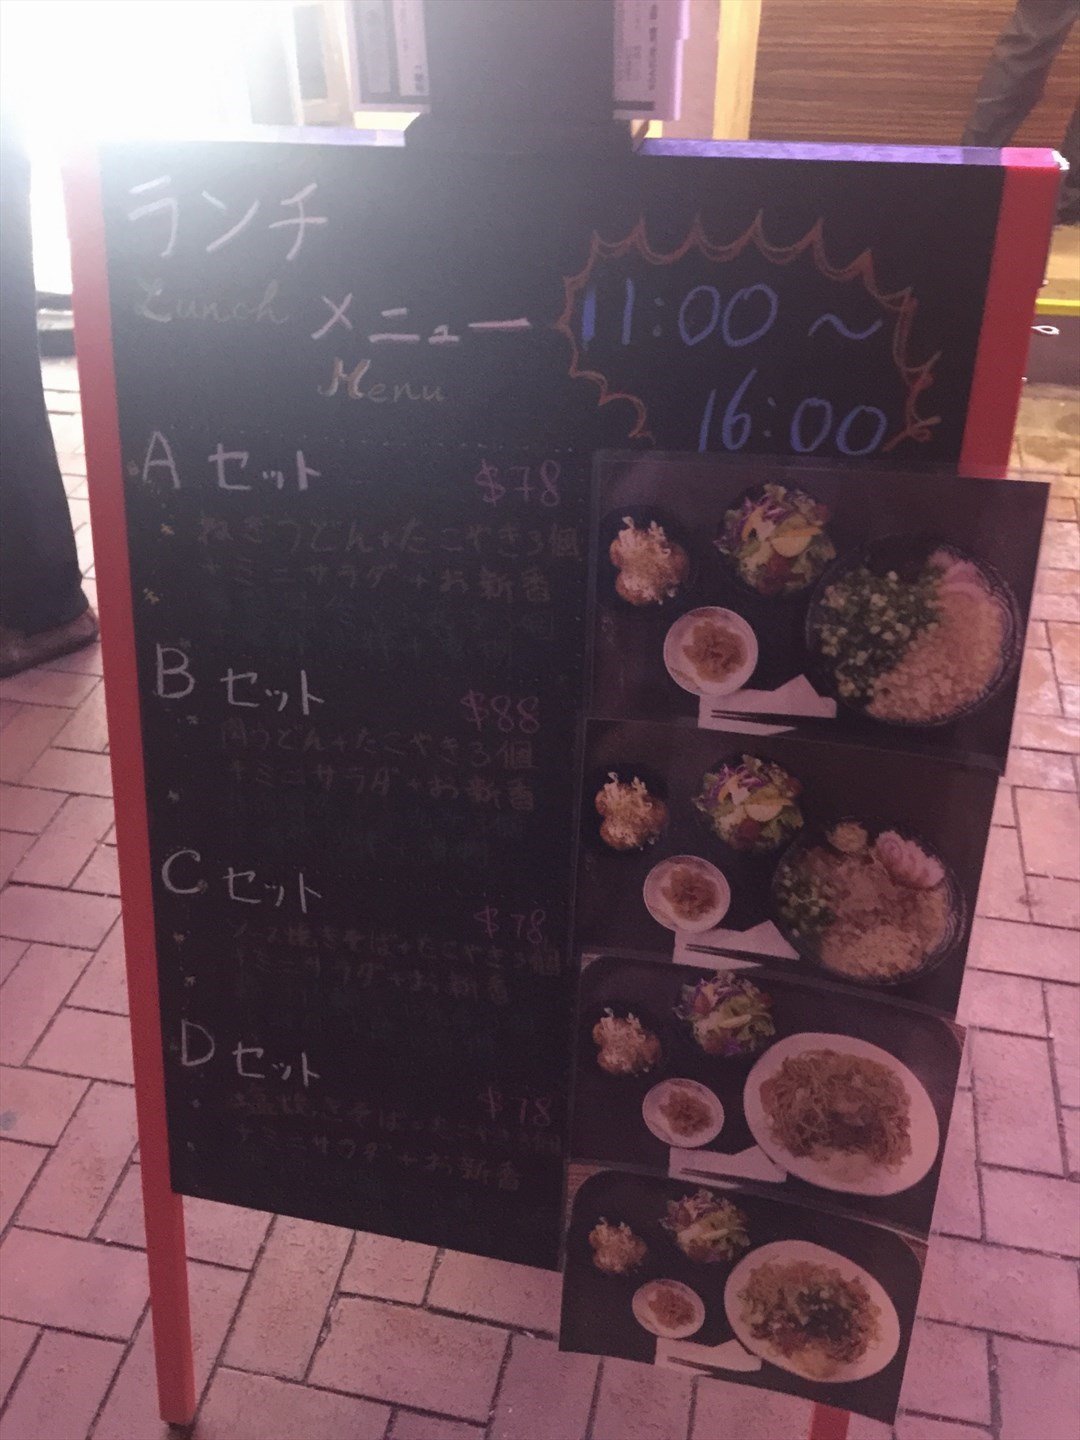 ランチ
Lunch メニュー
Menu
11:00 ～
16:00
A セット $78
ねぎうどん+たこやき3個
+ミニサラダ+お新香
B セット $88
肉うどん+たこやき3個
+ミニサラダ+お新香
C セット $78
ソース焼きそば+たこやき3個
+ミニサラダ+お新香
D セット $78
塩焼きそば+たこやき3個
+ミニサラダ+お新香